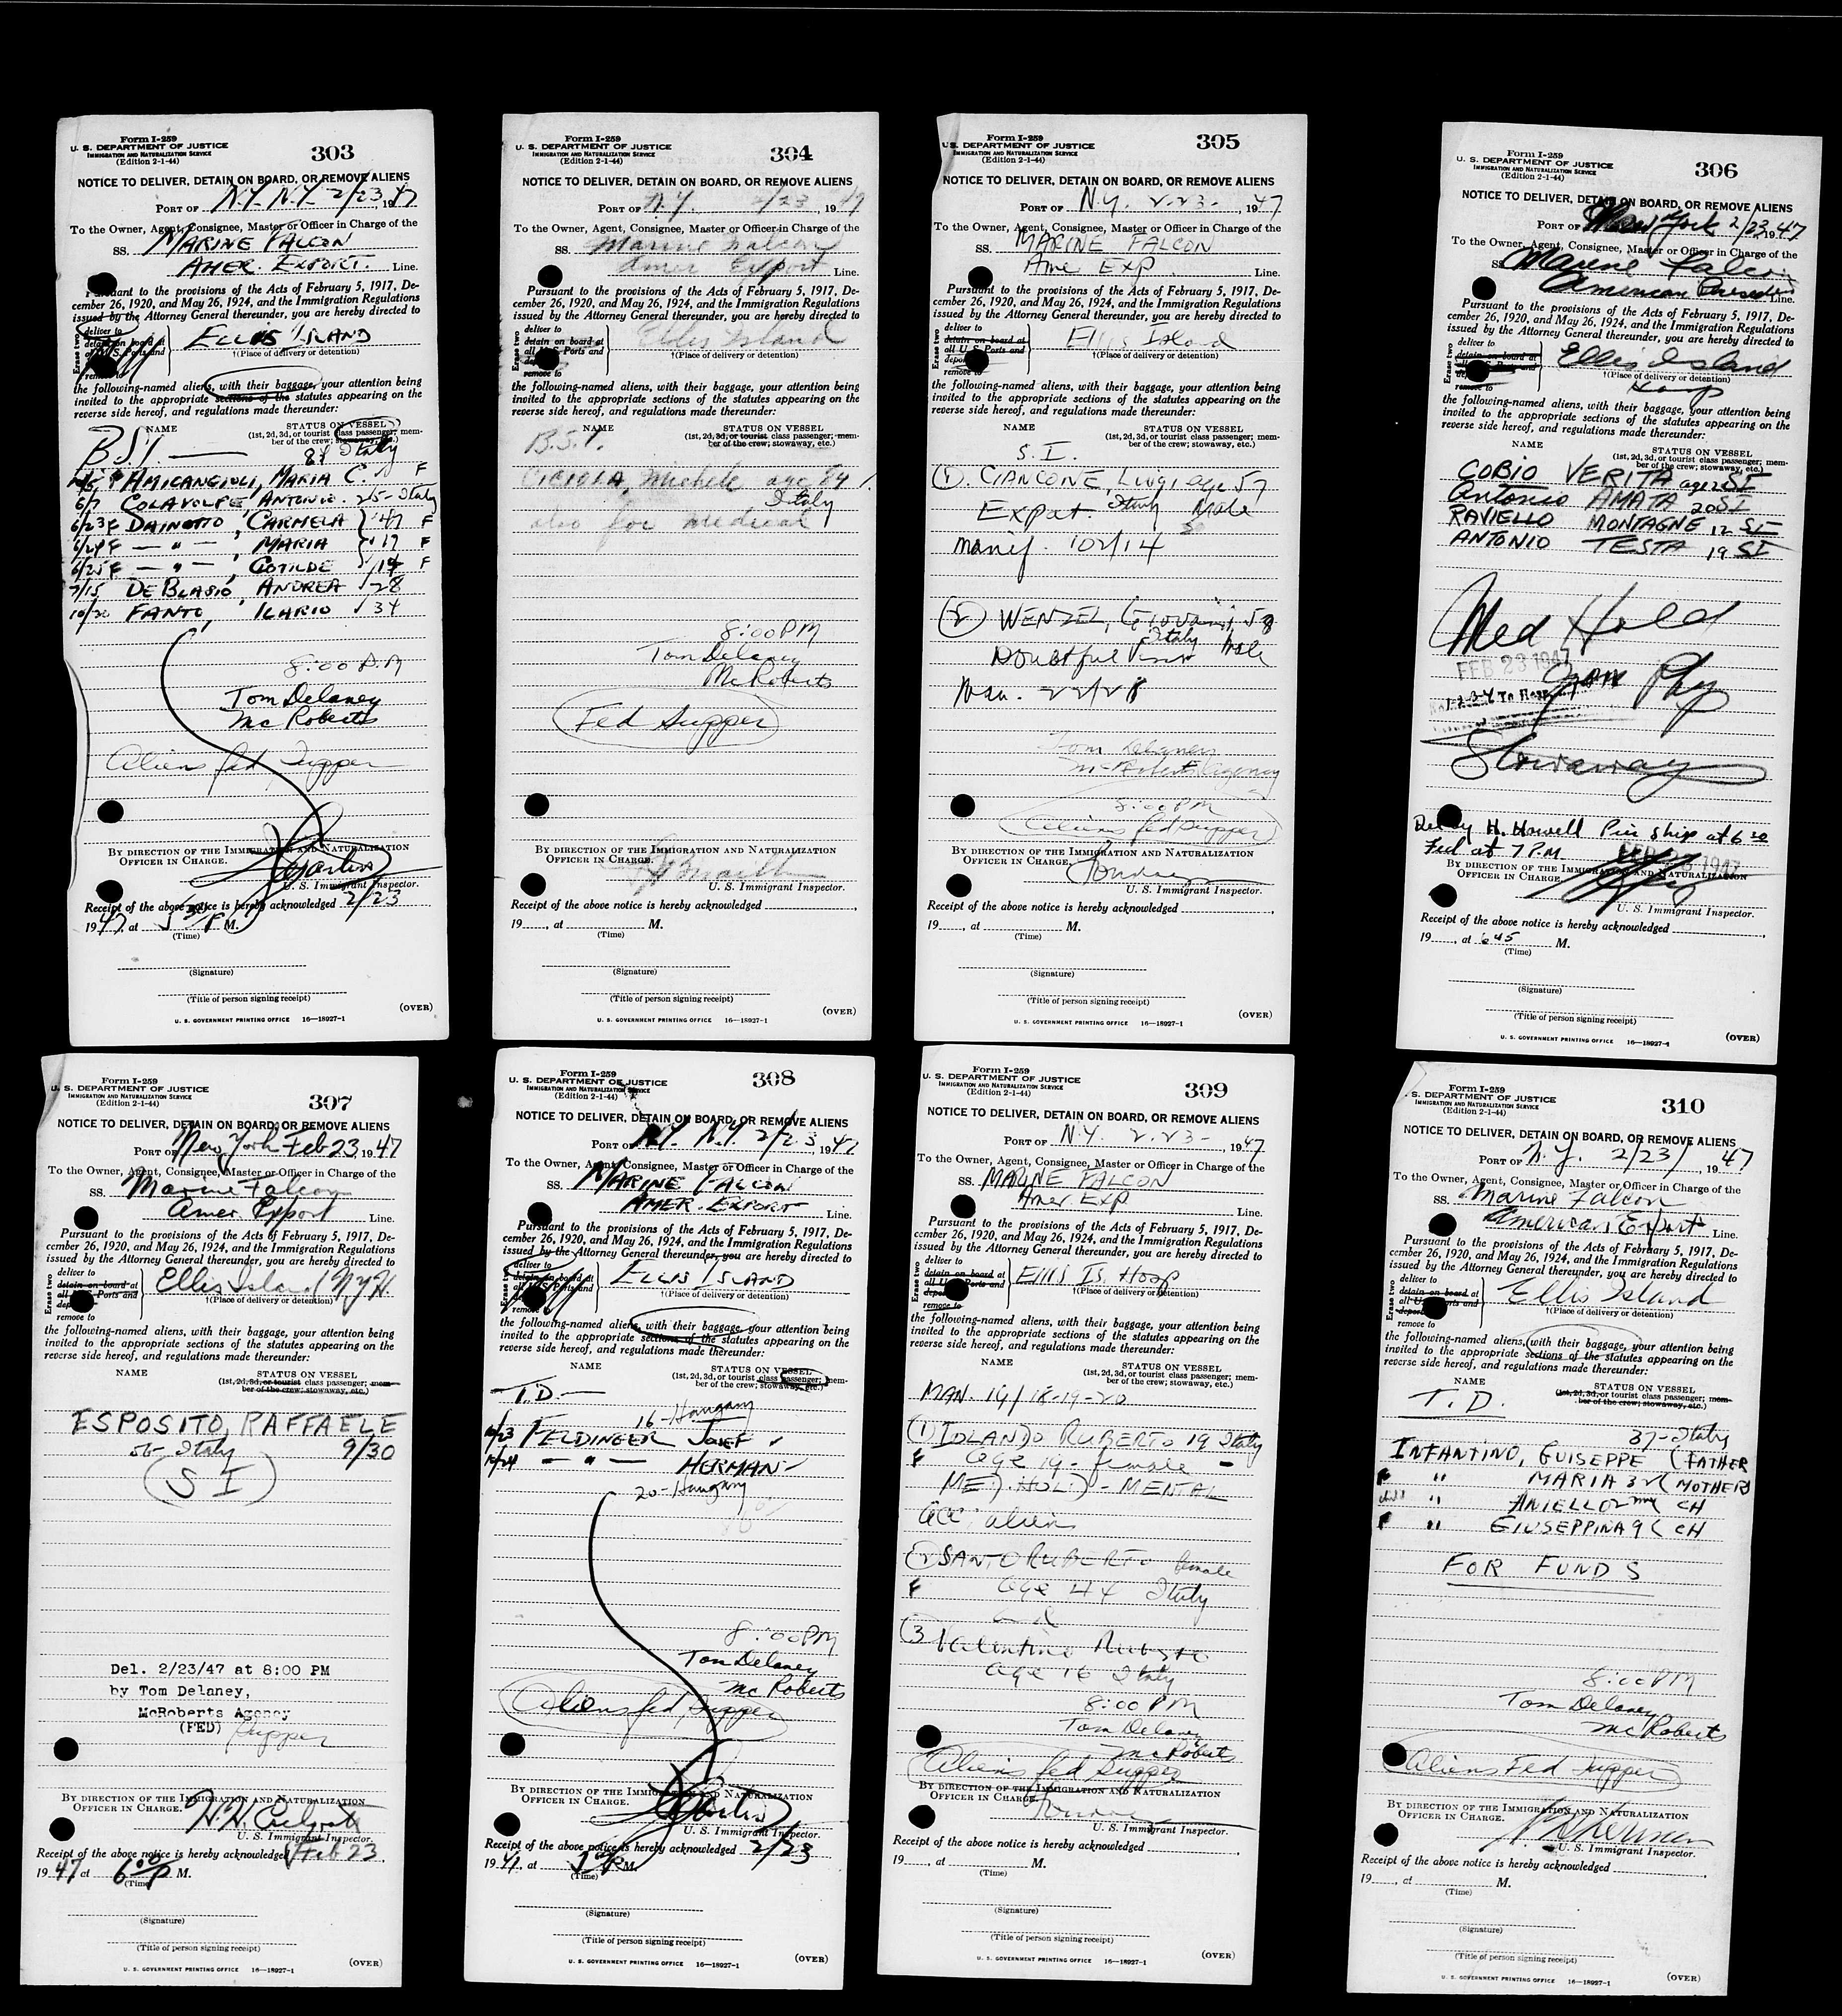 Form I-259
U. S. DEPARTMENT OF JUSTICE
IMMIGRATION AND NATURALIZATION SERVICE
(Edition 2-1-44)
303
NOTICE TO DELIVER, DETAIN ON BOARD, OR REMOVE ALIENS
PORT OF N.Y. N.Y. 2/23 1947
To the Owner, Agent, Consignee, Master or Officer in Charge of the
SS. MARINE FALCON
AMER. EXPORT. Line.
Pursuant to the provisions of the Acts of February 5, 1917, De-
cember 26, 1920, and May 26, 1924, and the Immigration Regulations
issued by the Attorney General thereunder, you are hereby directed to
Erase two
deliver to
detain on board at
U. S. Ports and
remove to
ELLIS ISLAND
†(Place of delivery or detention)
the following-named aliens, with their baggage, your attention being
invited to the appropriate sections of the statutes appearing on the
reverse side hereof, and regulations made thereunder:
NAME STATUS ON VESSEL
(1st, 2d, 3d, or tourist class passenger; mem-
ber of the crew; stowaway, etc.)
BSI — Italy
AMICANGIOLI, MARIA C. F
6/7 COLAVOLPE, ANTONIO. 25 - Italy
6/23 F DAINOTTO, CARMELA 47 F
6/24 F — " — , MARIA 19 F
6/25 F — " — , COTILDE 14 F
7/15 DE BLASIO, ANDREA 28
10/20 FANTO, ILARIO 34
8:00 PM
Tom Delaney
Mc Roberts
Aliens fed supper
BY DIRECTION OF THE IMMIGRATION AND NATURALIZATION
OFFICER IN CHARGE.
U. S. Immigrant Inspector.
Receipt of the above notice is hereby acknowledged 2/23
1947, at 5 PM.
(Time)
(Signature)
(Title of person signing receipt)
(OVER)
U. S. GOVERNMENT PRINTING OFFICE 16—18927-1
Form I-259
U. S. DEPARTMENT OF JUSTICE
IMMIGRATION AND NATURALIZATION SERVICE
(Edition 2-1-44)
304
NOTICE TO DELIVER, DETAIN ON BOARD, OR REMOVE ALIENS
PORT OF N.Y. 2/23, 1947
To the Owner, Agent, Consignee, Master or Officer in Charge of the
SS. Marine Falcon
Amer Export Line.
Pursuant to the provisions of the Acts of February 5, 1917, De-
cember 26, 1920, and May 26, 1924, and the Immigration Regulations
issued by the Attorney General thereunder, you are hereby directed to
Erase two
deliver to
detain on board at
all U. S. Ports and
remove to
Ellis Island
†(Place of delivery or detention)
the following-named aliens, with their baggage, your attention being
invited to the appropriate sections of the statutes appearing on the
reverse side hereof, and regulations made thereunder:
NAME STATUS ON VESSEL
(1st, 2d, 3d, or tourist class passenger; mem-
ber of the crew; stowaway, etc.)
B.S.I.
Michele age 54
Italy
also for medical
8:00 PM
Tom Delaney
Mc Roberts
Fed Supper
BY DIRECTION OF THE IMMIGRATION AND NATURALIZATION
OFFICER IN CHARGE.
U. S. Immigrant Inspector.
Receipt of the above notice is hereby acknowledged
19, at M.
(Time)
(Signature)
(Title of person signing receipt)
(OVER)
U. S. GOVERNMENT PRINTING OFFICE 16—18927-1
Form I-259
U. S. DEPARTMENT OF JUSTICE
IMMIGRATION AND NATURALIZATION SERVICE
(Edition 2-1-44)
305
NOTICE TO DELIVER, DETAIN ON BOARD, OR REMOVE ALIENS
PORT OF N.Y. 2.23-, 1947
To the Owner, Agent, Consignee, Master or Officer in Charge of the
SS. MARINE FALCON
Ame Exp Line.
Pursuant to the provisions of the Acts of February 5, 1917, De-
cember 26, 1920, and May 26, 1924, and the Immigration Regulations
issued by the Attorney General thereunder, you are hereby directed to
Erase two
deliver to
detain on board at
all U. S. Ports and
Ellis Island
†(Place of delivery or detention)
the following-named aliens, with their baggage, your attention being
invited to the appropriate sections of the statutes appearing on the
reverse side hereof, and regulations made thereunder:
NAME STATUS ON VESSEL
(1st, 2d, 3d, or tourist class passenger; mem-
ber of the crew; stowaway, etc.)
S.I.
(1) CIANCONE, Luigi age 57
Expat. Italy Male
Manif. 102/14
(2) WENZEL, Giovanni, 58
Italy Male
Doubtful Visit
Man. 22/28
Tom Delaney
McRoberts Agency
8:00 PM
Aliens fed supper
BY DIRECTION OF THE IMMIGRATION AND NATURALIZATION
OFFICER IN CHARGE.
U. S. Immigrant Inspector.
Receipt of the above notice is hereby acknowledged
19, at M.
(Time)
(Signature)
(Title of person signing receipt)
(OVER)
U. S. GOVERNMENT PRINTING OFFICE 16—18927-1
Form I-259
U. S. DEPARTMENT OF JUSTICE
IMMIGRATION AND NATURALIZATION SERVICE
(Edition 2-1-44)
306
NOTICE TO DELIVER, DETAIN ON BOARD, OR REMOVE ALIENS
PORT OF New York 2/23, 1947
To the Owner, Agent, Consignee, Master or Officer in Charge of the
SS. Marine Falcon
American President Line.
Pursuant to the provisions of the Acts of February 5, 1917, De-
cember 26, 1920, and May 26, 1924, and the Immigration Regulations
issued by the Attorney General thereunder, you are hereby directed to
Erase two
deliver to
detain on board at
all U. S. Ports and
remove to
Ellis Island
†(Place of delivery or detention)
Hosp
the following-named aliens, with their baggage, your attention being
invited to the appropriate sections of the statutes appearing on the
reverse side hereof, and regulations made thereunder:
NAME STATUS ON VESSEL
(1st, 2d, 3d, or tourist class passenger; mem-
ber of the crew; stowaway, etc.)
COBIO VERITA age SI
Antonio AMATA 20 SI
RAVIELLO MONTAGNE 12 SI
ANTONIO TESTA 19 SI
Med Hold
FEB 23 1947
Stowaway
Del by H. Howell Pier ship at 6 30
Fed at 7 P.M
FEB 23 1947
BY DIRECTION OF THE IMMIGRATION AND NATURALIZATION
OFFICER IN CHARGE.
U. S. Immigrant Inspector.
Receipt of the above notice is hereby acknowledged
19, at 6 45 M.
(Time)
(Signature)
(Title of person signing receipt)
(OVER)
U. S. GOVERNMENT PRINTING OFFICE 16—18927-1
Form I-259
U. S. DEPARTMENT OF JUSTICE
IMMIGRATION AND NATURALIZATION SERVICE
(Edition 2-1-44)
307
NOTICE TO DELIVER, DETAIN ON BOARD, OR REMOVE ALIENS
PORT OF New York Feb 23, 1947
To the Owner, Agent, Consignee, Master or Officer in Charge of the
SS. Marine Falcon
Amer. Export Line.
Pursuant to the provisions of the Acts of February 5, 1917, De-
cember 26, 1920, and May 26, 1924, and the Immigration Regulations
issued by the Attorney General thereunder, you are hereby directed to
Erase two
deliver to
detain on board at
all U. S. Ports and
remove to
Ellis Island NYH.
†(Place of delivery or detention)
the following-named aliens, with their baggage, your attention being
invited to the appropriate sections of the statutes appearing on the
reverse side hereof, and regulations made thereunder:
NAME STATUS ON VESSEL
(1st, 2d, 3d, or tourist class passenger; mem-
ber of the crew; stowaway, etc.)
ESPOSITO, RAFFAELE
56- Italy 9/30
(S I)
Del. 2/23/47 at 8:00 PM
by Tom Delaney,
McRoberts Agency
(FED) Supper
BY DIRECTION OF THE IMMIGRATION AND NATURALIZATION
OFFICER IN CHARGE.
U. S. Immigrant Inspector.
Receipt of the above notice is hereby acknowledged Feb 23
1947 at 6 00 P M.
(Time)
(Signature)
(Title of person signing receipt)
(OVER)
U. S. GOVERNMENT PRINTING OFFICE 16—18927-1
Form I-259
U. S. DEPARTMENT OF JUSTICE
IMMIGRATION AND NATURALIZATION SERVICE
(Edition 2-1-44)
308
NOTICE TO DELIVER, DETAIN ON BOARD, OR REMOVE ALIENS
PORT OF N.Y. N.Y. 2/23, 1947
To the Owner, Agent, Consignee, Master or Officer in Charge of the
SS. MARINE FALCON
AMER. EXPORT Line.
Pursuant to the provisions of the Acts of February 5, 1917, De-
cember 26, 1920, and May 26, 1924, and the Immigration Regulations
issued by the Attorney General thereunder, you are hereby directed to
Erase two
deliver to
detain on board at
all U. S. Ports and
remove to
ELLIS ISLAND
†(Place of delivery or detention)
the following-named aliens, with their baggage, your attention being
invited to the appropriate sections of the statutes appearing on the
reverse side hereof, and regulations made thereunder:
NAME STATUS ON VESSEL
(1st, 2d, 3d, or tourist class passenger; mem-
ber of the crew; stowaway, etc.)
T.D.—
16 - Hungary
FELDINGER JOSEF
— " — HERMAN
20 - Hungary
8:00 PM
Tom Delaney
Mc Roberts
Aliens fed supper
BY DIRECTION OF THE IMMIGRATION AND NATURALIZATION
OFFICER IN CHARGE.
U. S. Immigrant Inspector.
Receipt of the above notice is hereby acknowledged 2/23
1947, at M.
(Time)
(Signature)
(Title of person signing receipt)
(OVER)
U. S. GOVERNMENT PRINTING OFFICE 16—18927-1
Form I-259
U. S. DEPARTMENT OF JUSTICE
IMMIGRATION AND NATURALIZATION SERVICE
(Edition 2-1-44)
309
NOTICE TO DELIVER, DETAIN ON BOARD, OR REMOVE ALIENS
PORT OF N.Y. 2.23-, 1947
To the Owner, Agent, Consignee, Master or Officer in Charge of the
SS. MARINE FALCON
Amer Exp Line.
Pursuant to the provisions of the Acts of February 5, 1917, De-
cember 26, 1920, and May 26, 1924, and the Immigration Regulations
issued by the Attorney General thereunder, you are hereby directed to
Erase two
deliver to
detain on board at
all U. S. Ports and
remove to
Ellis Is. Hosp
†(Place of delivery or detention)
the following-named aliens, with their baggage, your attention being
invited to the appropriate sections of the statutes appearing on the
reverse side hereof, and regulations made thereunder:
NAME STATUS ON VESSEL
(1st, 2d, 3d, or tourist class passenger; mem-
ber of the crew; stowaway, etc.)
MAN. 19/18-19-20
(1) IOLANDO RUBERTO 19 Italy
F age 19 - female -
MED. HOLD - MENTAL
acc. alien
(2) SANTO RUBERTO female
F age 44 Italy
(3) Valentino Ruberto
age 16 Italy
8:00 PM
Tom Delaney
Mc Roberts
Aliens fed supper
BY DIRECTION OF THE IMMIGRATION AND NATURALIZATION
OFFICER IN CHARGE.
U. S. Immigrant Inspector.
Receipt of the above notice is hereby acknowledged
19, at M.
(Time)
(Signature)
(Title of person signing receipt)
(OVER)
U. S. GOVERNMENT PRINTING OFFICE 16—18927-1
Form I-259
U. S. DEPARTMENT OF JUSTICE
IMMIGRATION AND NATURALIZATION SERVICE
(Edition 2-1-44)
310
NOTICE TO DELIVER, DETAIN ON BOARD, OR REMOVE ALIENS
PORT OF N.Y. 2/23/, 1947
To the Owner, Agent, Consignee, Master or Officer in Charge of the
SS. Marine Falcon
American Export Line.
Pursuant to the provisions of the Acts of February 5, 1917, De-
cember 26, 1920, and May 26, 1924, and the Immigration Regulations
issued by the Attorney General thereunder, you are hereby directed to
Erase two
deliver to
detain on board at
all U. S. Ports and
remove to
Ellis Island
†(Place of delivery or detention)
the following-named aliens, with their baggage, your attention being
invited to the appropriate sections of the statutes appearing on the
reverse side hereof, and regulations made thereunder:
NAME STATUS ON VESSEL
(1st, 2d, 3d, or tourist class passenger; mem-
ber of the crew; stowaway, etc.)
T.D.
37 - Italy
INFANTINO, GUISEPPE (FATHER
F " MARIA 32 (MOTHER)
" ANIELLO CH
F " GIUSEPPINA 9 ( CH
FOR FUNDS
8:00 PM
Tom Delaney
Mc Roberts
Aliens Fed Supper
BY DIRECTION OF THE IMMIGRATION AND NATURALIZATION
OFFICER IN CHARGE.
U. S. Immigrant Inspector.
Receipt of the above notice is hereby acknowledged
19, at M.
(Time)
(Signature)
(Title of person signing receipt)
(OVER)
U. S. GOVERNMENT PRINTING OFFICE 16—18927-1